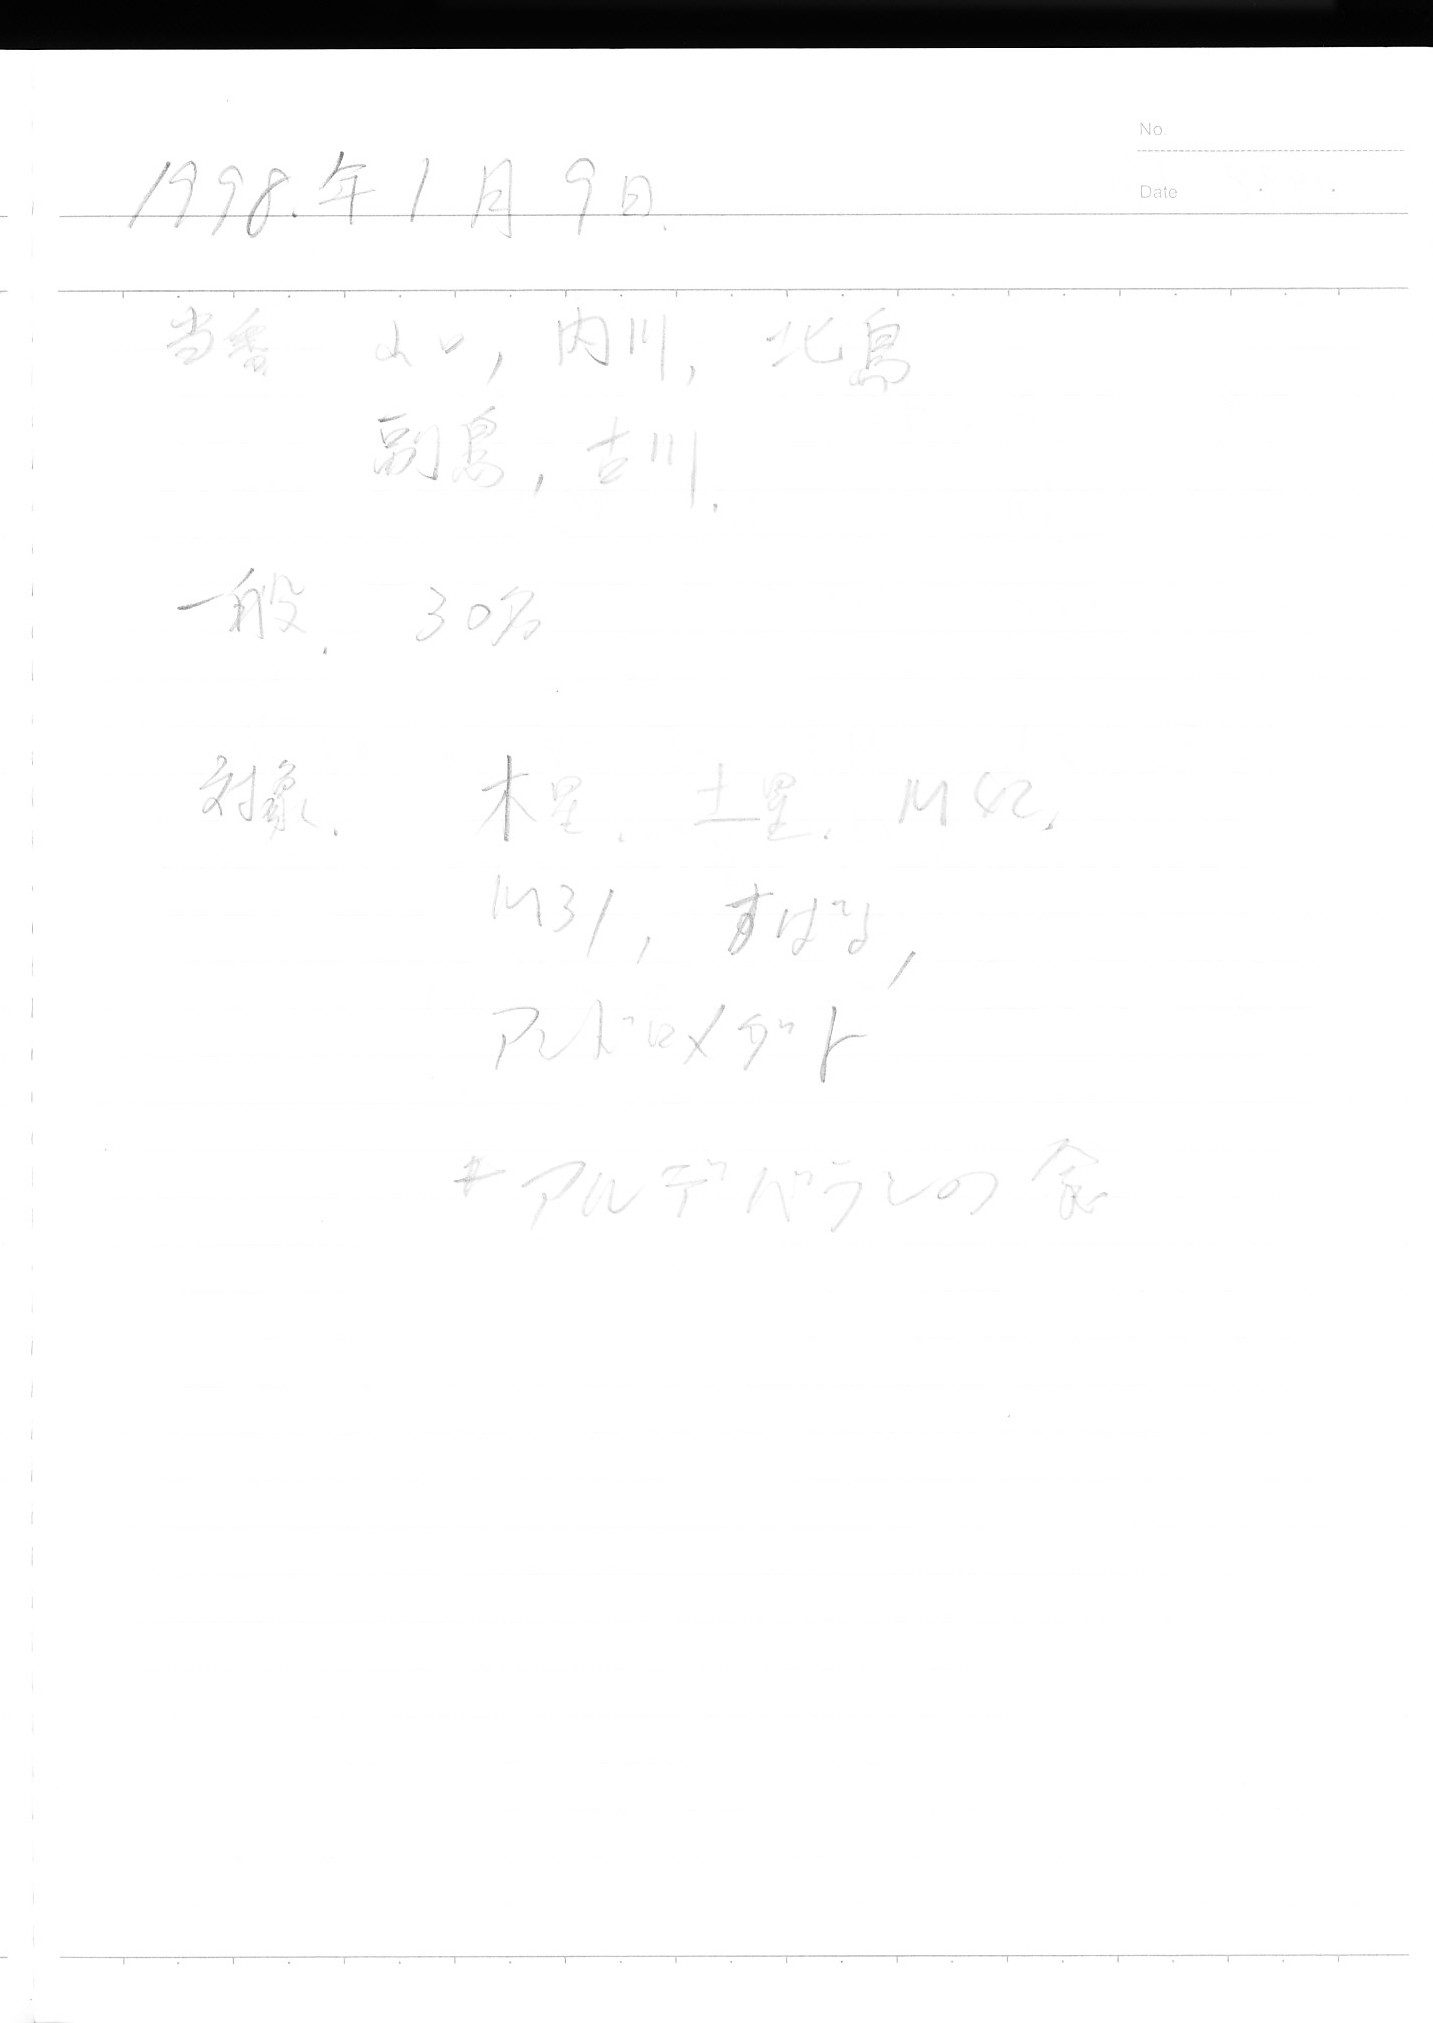 No.
1998.年1月9日.
Date
当番 山口, 内川, 北島
副島, 古川.
一般. 30名
対象. 木星. 土星. M42.
M31, すばる,
アンドロメダ ト
*アルデバランの食